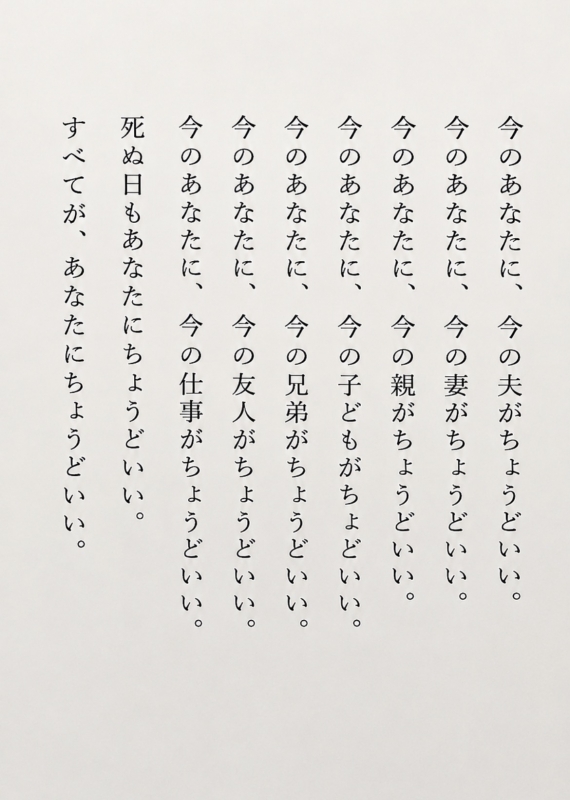 今のあなたに、今の夫がちょうどいい。
今のあなたに、今の妻がちょうどいい。
今のあなたに、今の親がちょうどいい。
今のあなたに、今の子どもがちょどいい。
今のあなたに、今の兄弟がちょうどいい。
今のあなたに、今の友人がちょうどいい。
今のあなたに、今の仕事がちょうどいい。
死ぬ日もあなたにちょうどいい。
すべてが、あなたにちょうどいい。